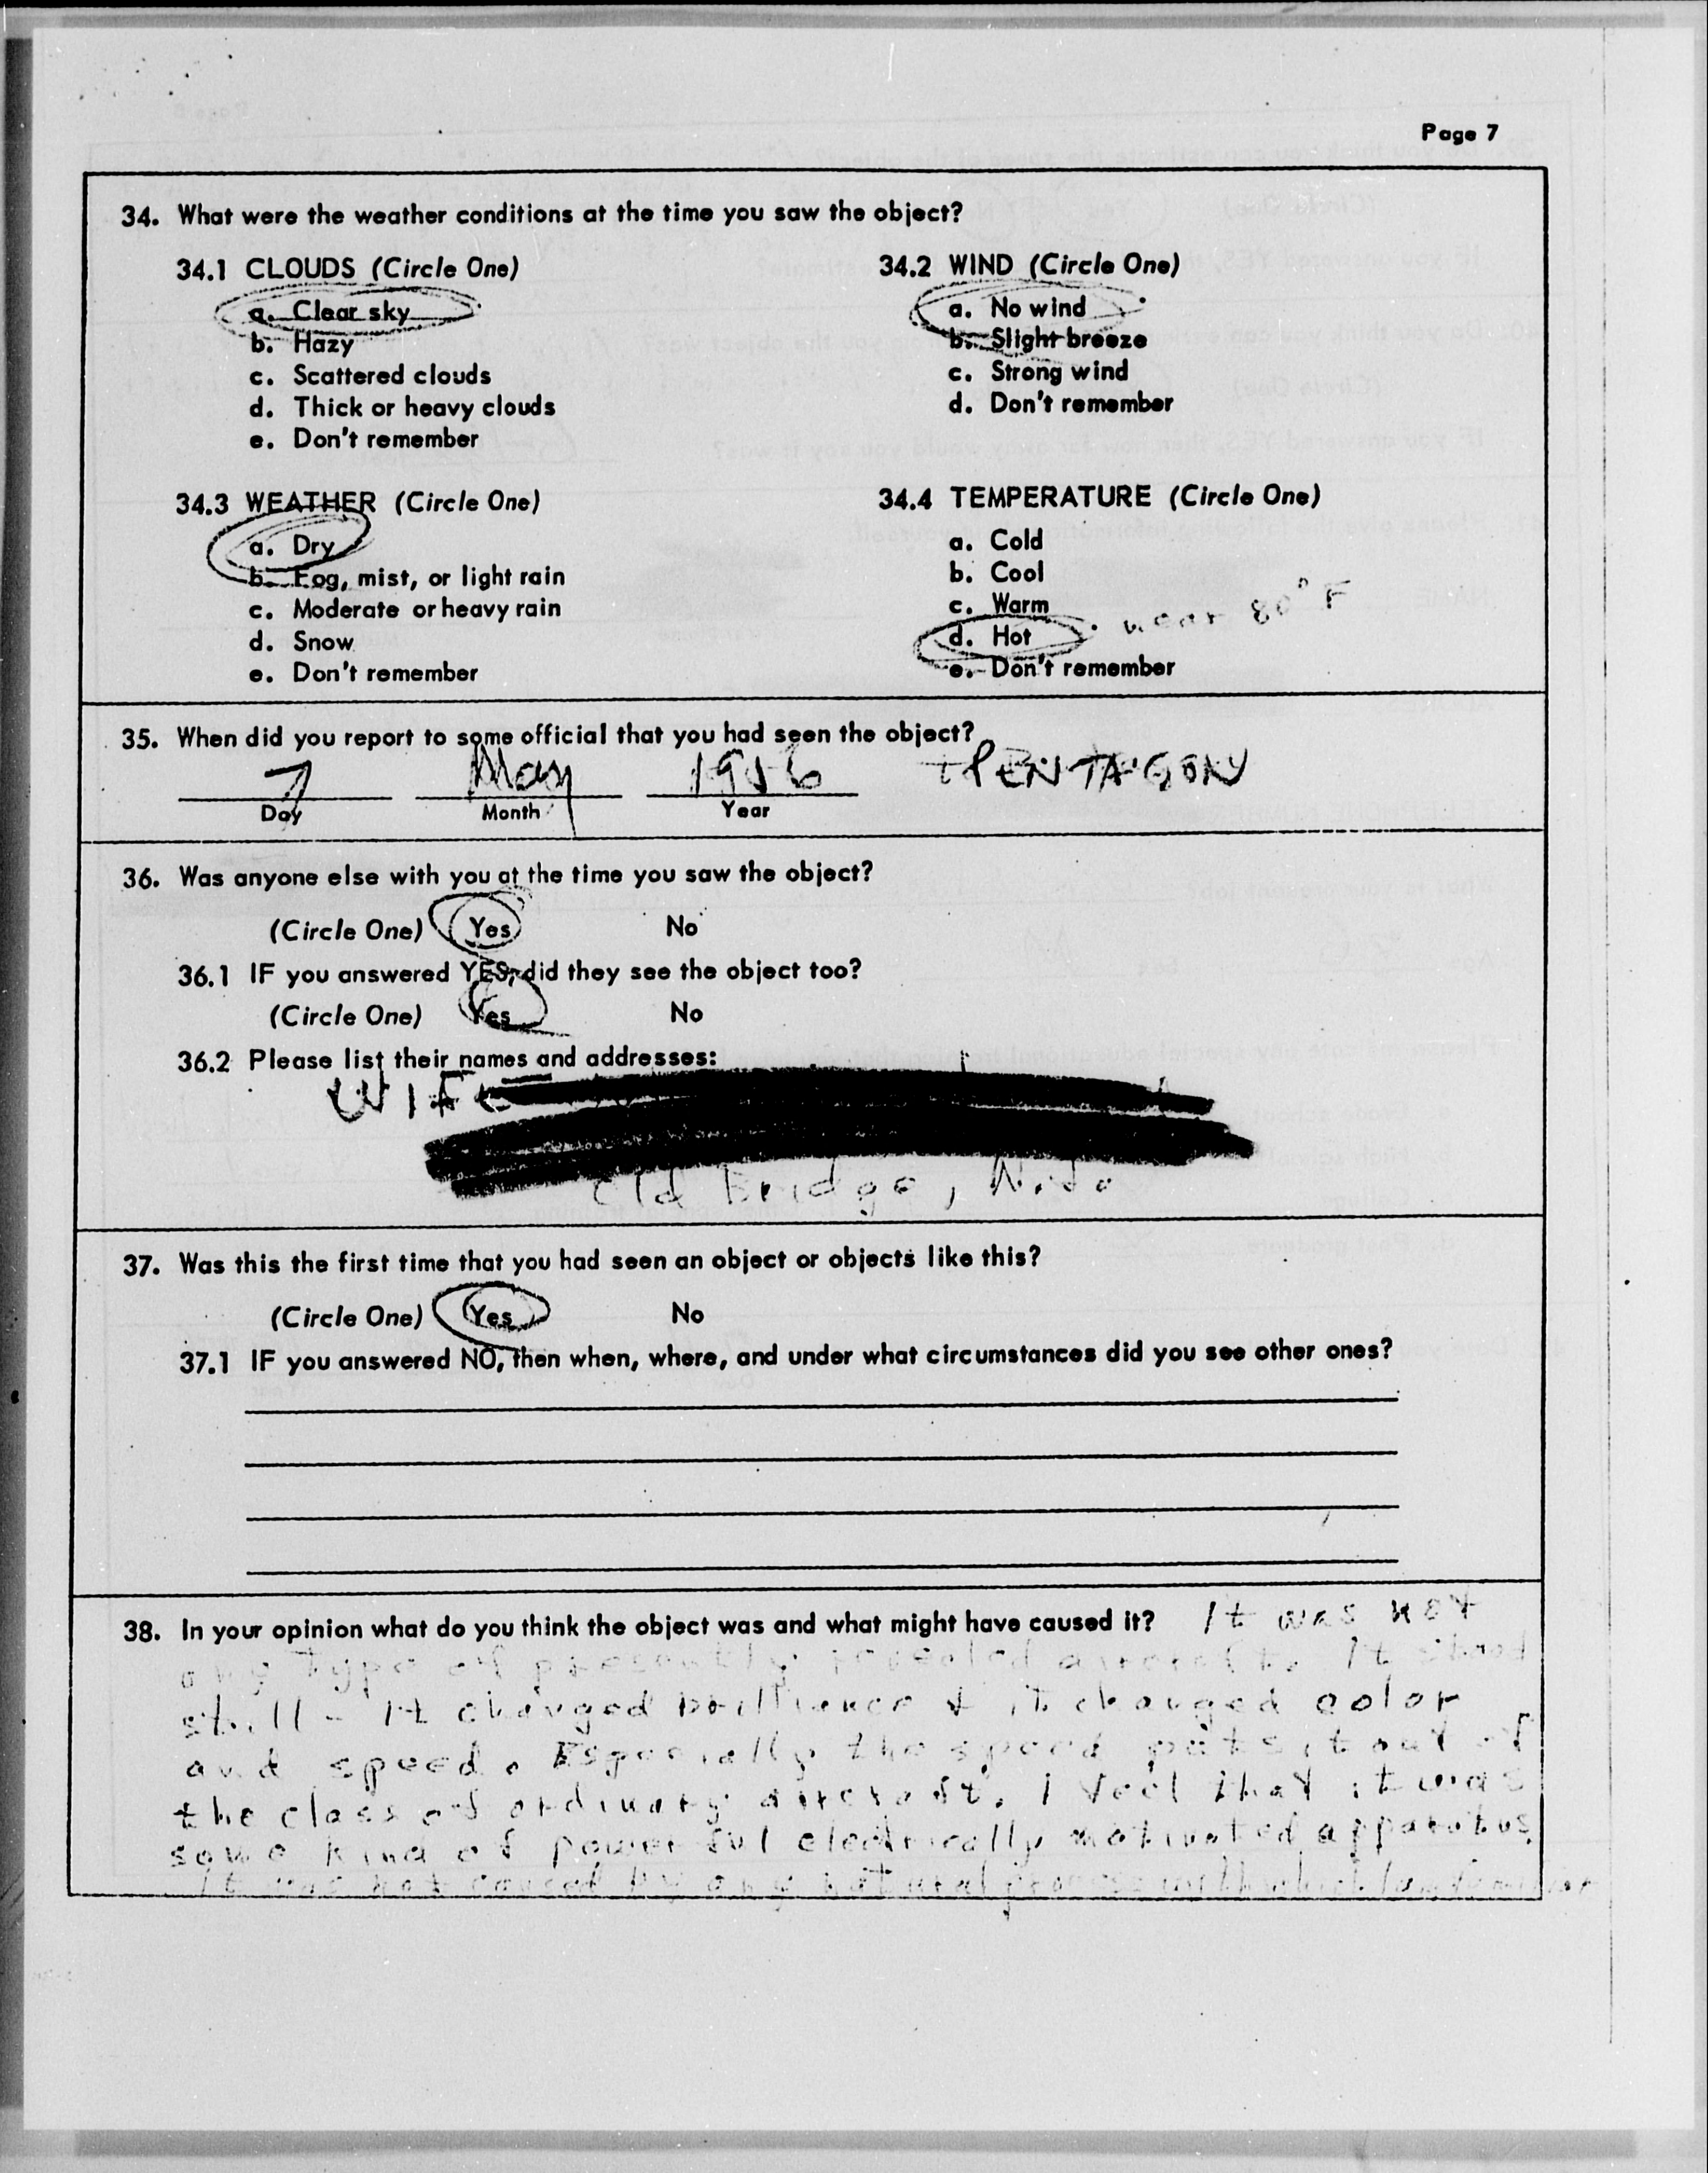 Page 7
34. What were the weather conditions at the time you saw the object?
34.1 CLOUDS (Circle One)
a. Clear sky
b. Hazy
c. Scattered clouds
d. Thick or heavy clouds
e. Don't remember
34.2 WIND (Circle One)
a. No wind
b. Slight breeze
c. Strong wind
d. Don't remember
34.3 WEATHER (Circle One)
a. Dry
b. Fog, mist, or light rain
c. Moderate or heavy rain
d. Snow
e. Don't remember
34.4 TEMPERATURE (Circle One)
a. Cold
b. Cool
c. Warm
d. Hot near 80° F
e. Don't remember
35. When did you report to some official that you had seen the object?
7 May 1956 PENTAGON
Day Month Year
36. Was anyone else with you at the time you saw the object?
(Circle One) Yes No
36.1 IF you answered YES, did they see the object too?
(Circle One) Yes No
36.2 Please list their names and addresses:
WIFE
Old Bridge, N.J.
37. Was this the first time that you had seen an object or objects like this?
(Circle One) Yes No
37.1 IF you answered NO, then when, where, and under what circumstances did you see other ones?
38. In your opinion what do you think the object was and what might have caused it? It was not
any type of presently revealed aircraft. It stood
still - it changed brilliance & it changed color
and speed. Especially the speed puts it out of
the class of ordinary aircraft. I feel that it was
some kind of powerful electrically motivated apparatus
It was not caused by any natural process with which I am familiar